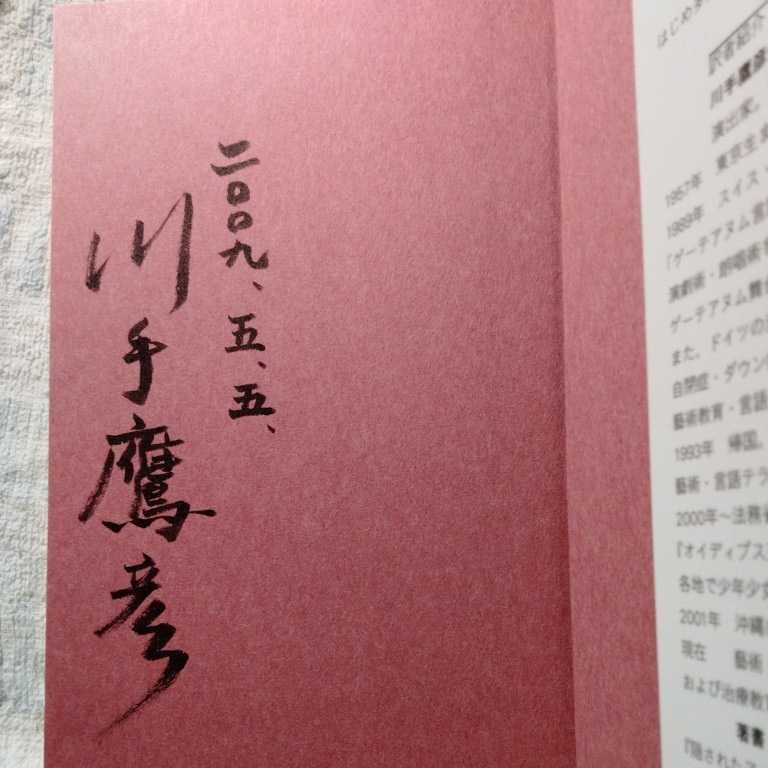 二〇〇九、五、五、
川手鷹彦
はじめ
訳者紹介
川手鷹彦
演出家。
1957年 東京生
1989年 スイス
「ゲーテアヌム言
演劇術・朗唱術
ゲーテアヌム舞
また、ドイツの
自閉症・ダウン
藝術教育・言語
1993年 帰国。
藝術・言語テラ
2000年〜法務省
『オイディプス
各地で少年少女
2001年 沖縄
現在 藝術
および治療教育
著書
『隠された